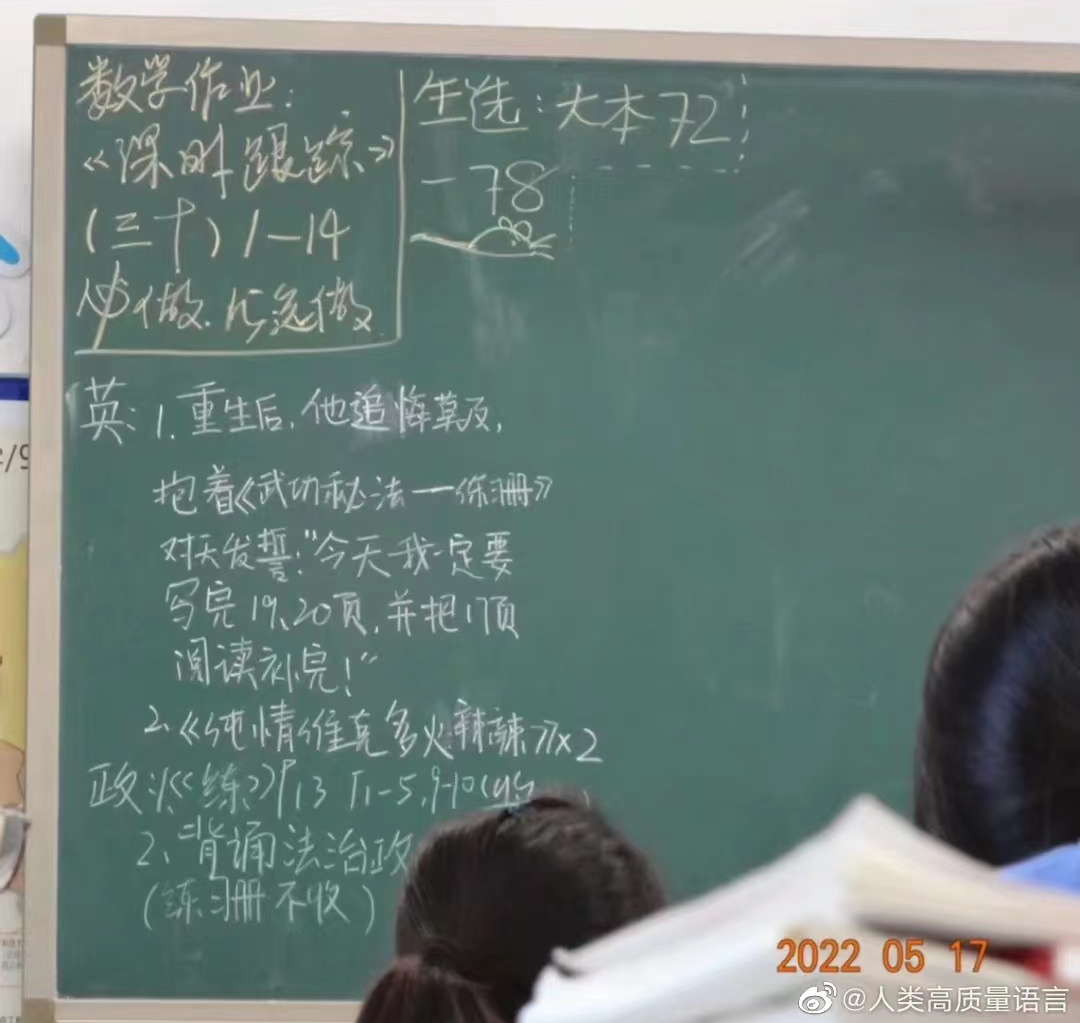 数学作业:
《课时跟踪》
(三十) 1-14
必做. 15选做
生选:大本72
-78
英: 1. 重生后, 他追悔莫及,
抱着《武功秘法—练习册》
对天发誓:"今天我一定要
写完19、20页, 并把17页
阅读补完!"
2.《纯情维克多火辣辣》×2
政:1.《练》P13 T1-5,9-10
2、背诵法治政
(练习册不收)
2022 05 17
@人类高质量语言